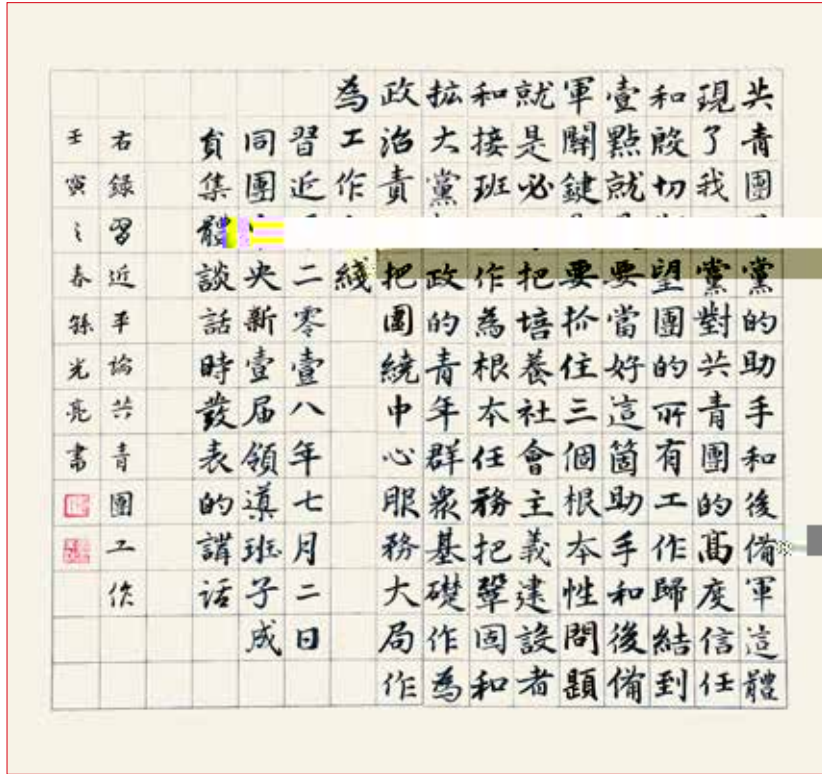 共青團黨的助手和後備軍這體
現了我黨對共青團的高度信任
和殷切望團的所有工作歸結到
壹點就要當好這箇助手和後備
軍關鍵要抓住三個根本性問題
就是必把培養社會主義建設者
和接班作為根本任務把鞏固和
拡大黨政的青年群衆基礎作為
政治責把圍繞中心服務大局作
為工作綫
習近二零壹八年七月二日
同團央新壹届領導班子成
貟集體談話時發表的講話
右録習近平論共青團工作
壬寅之春孫光亮書